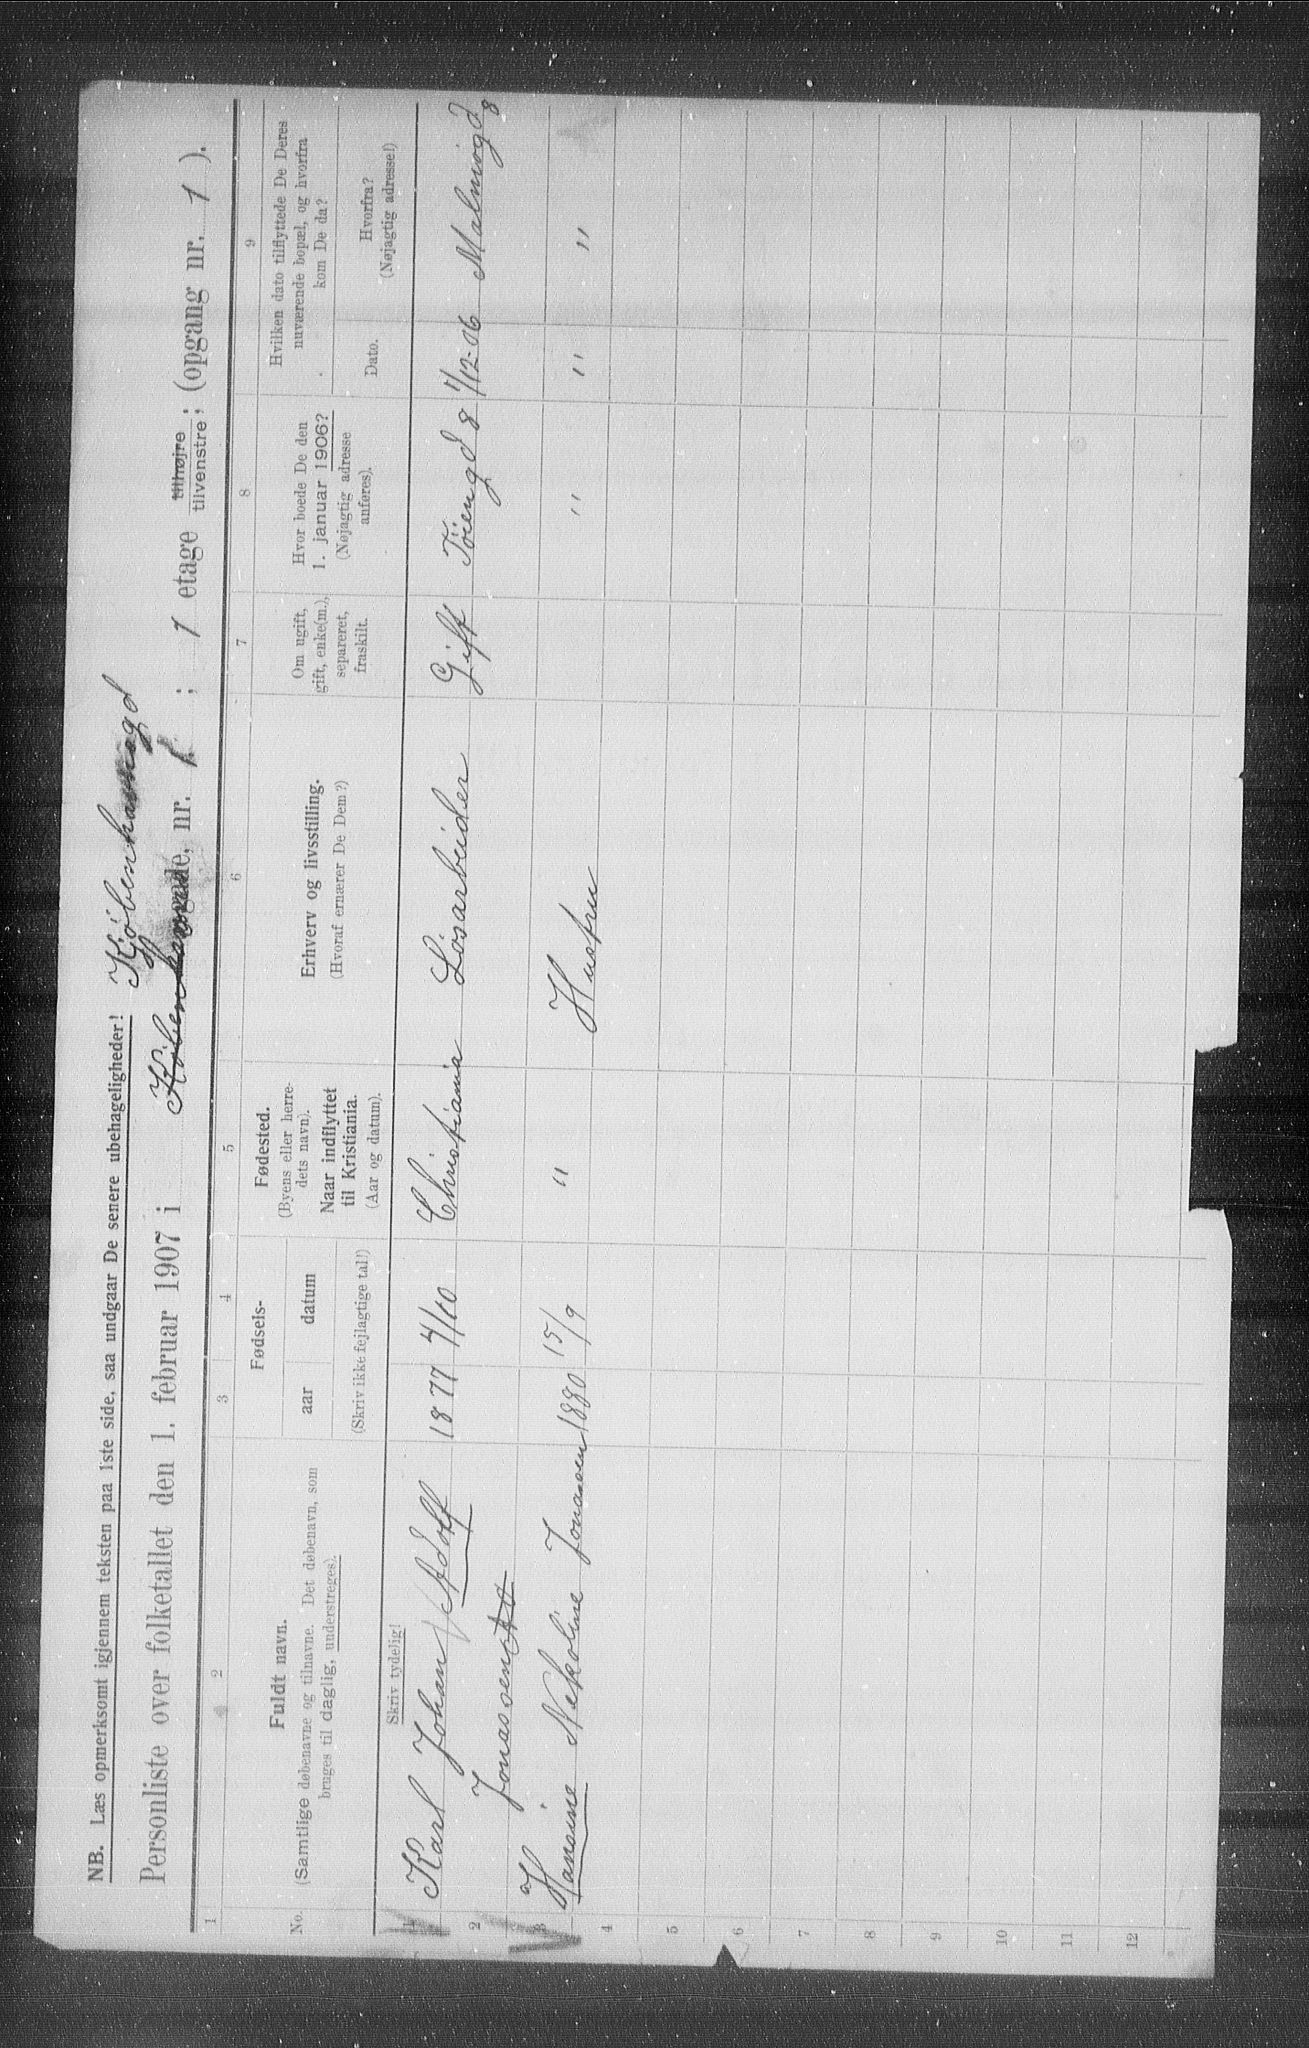 NB. Læs opmerksomt igjennem teksten paa 1ste side, saa undgaar De senere ubehageligheder! Kjöbenhavnsgd
Personliste over folketallet den 1. februar 1907 i gade, nr. 1 ; 1 etage tilhøjre tilvenstre ; (opgang nr. 1 ).
1 2 3 4 5 6 7 8 9
No. Fuldt navn.
(Samtlige døbenavne og tilnavne. Det døbenavn, som
bruges til daglig, understreges).
Skriv tydelig!
Fødsels-
aar datum
(Skriv ikke fejlagtige tal!)
Fødested.
(Byens eller herre-
dets navn).
Naar indflyttet
til Kristiania.
(Aar og datum).
Erhverv og livsstilling.
(Hvoraf ernærer De Dem?)
Om ugift,
gift, enke(m.),
separeret,
fraskilt.
Hvor boede De den
1. januar 1906?
(Nøjagtig adresse
anføres).
Hvilken dato tilflyttede De Deres
nuværende bopæl, og hvorfra
kom De da?
Dato.
Hvorfra?
(Nøjagtig adresse!)
1 Karl Johan Adolf 1877 4/10 Christiania Lösarbeider Gift Töiengd 8 1/12-06 Malmögd 8
2 Jonassen
3 Hansine Nekoline Jonassen 1880 15/9 " Hustru " " "
4
5
6
7
8
9
10
11
12